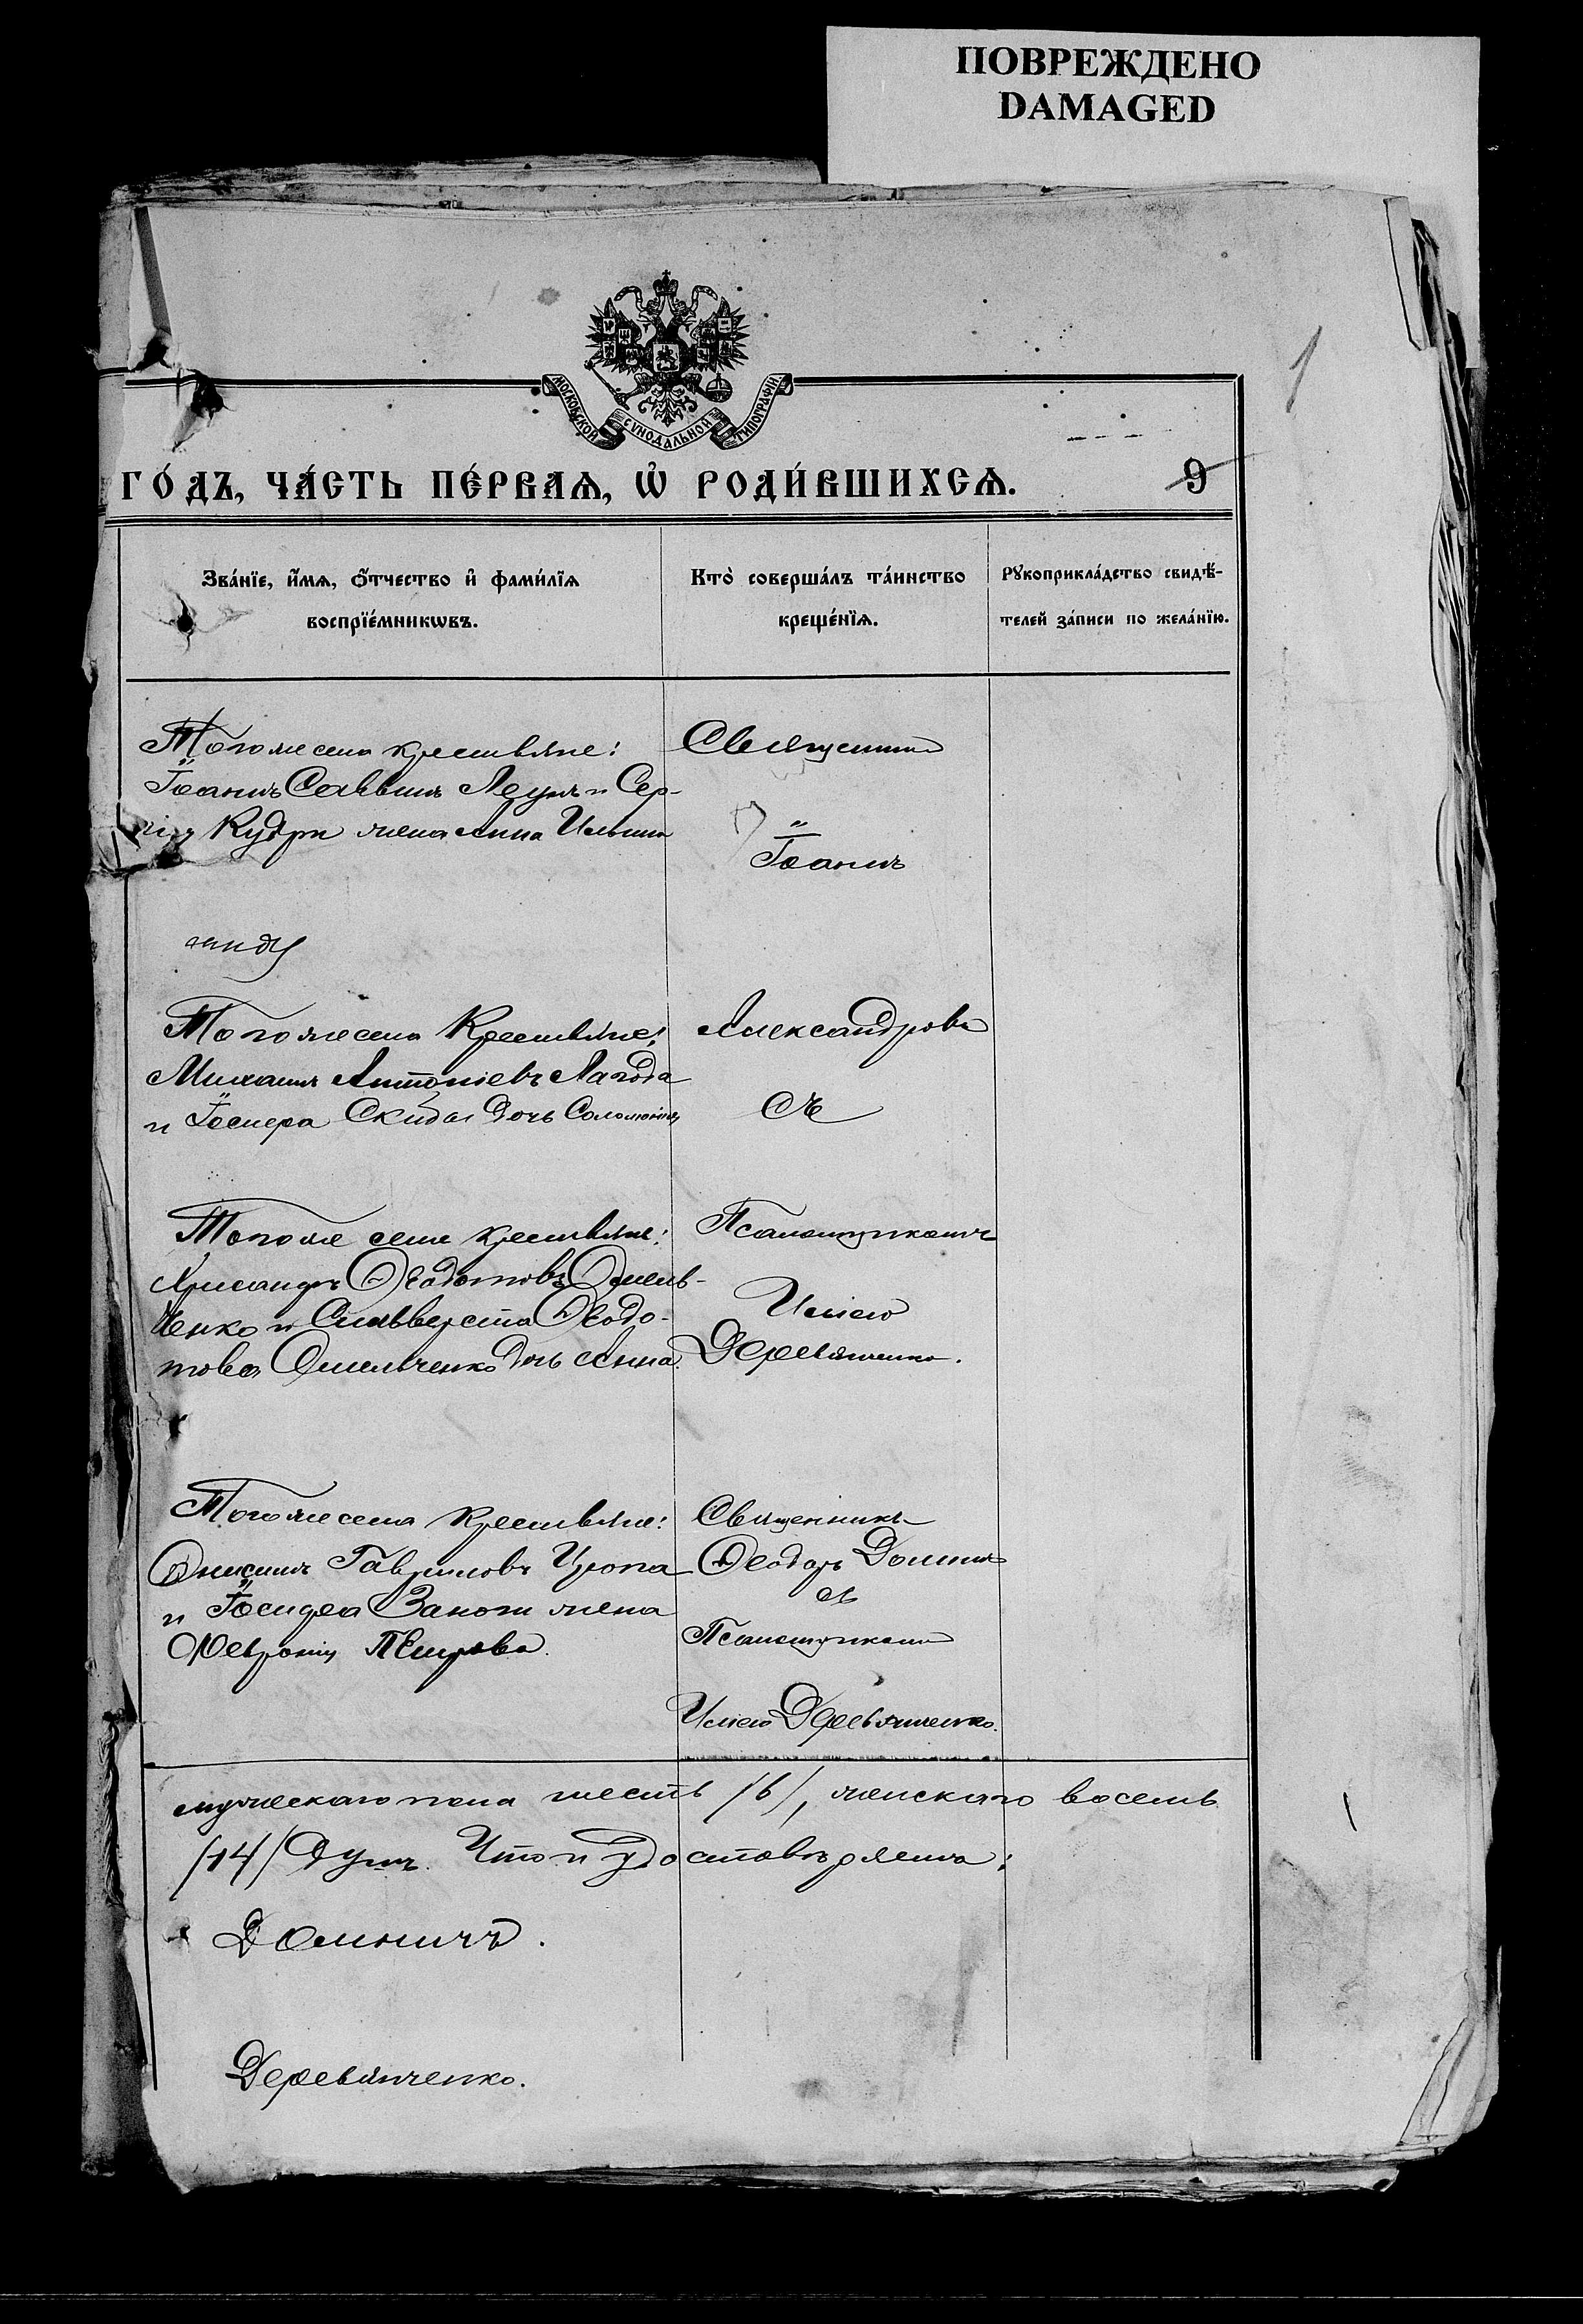 ПОВРЕЖДЕНО
DAMAGED
1
МОСКОВСКОЙ СУНОДАЛЬНОЙ ТИПОГРАФІИ
ГО́ДЪ, ЧА́СТЬ ПЕ́РВАѦ, Ѡ҆ РОДИ́ВШИХСѦ.
9
Зва́нїе, и҆́мѧ, ѻ҆́тчество и҆ фами́лїѧ
воспрїе́мникѡвъ.
Кто̀ соверша́лъ та́инство
креще́нїѧ.
Рꙋкоприкла́дство свидѣ́-
телей за́писи по жела́нїю.
Того же села крестьяне:
Іоаннъ Саввинъ и Сер-
гія Кудри жена Анна
Священникъ
Іоаннъ
Того же села Крестьяне:
Михаилъ Антоніевъ Лагода
и Іосифа Скиба дочь Соломонія
Александровъ
съ
Того же села крестьяне:
Хрисанфъ Ѳеодотовъ Омель-
ченко и Сильвестра Ѳеодо-
това Омельченко дочь Анна.
Псаломщикомъ
Иліею
Деревянченко.
Того же села крестьяне:
Онисимъ Гавриловъ Цюпа
и жена
Февронія Петрова.
Священникъ
Ѳеодоръ Домничъ
съ
Псаломщикомъ
Иліею Деревянченко.
мужескаго пола шесть /6/, женскаго восемь
/14/ душъ. Что и удостовѣряемъ:
Домничъ.
Деревянченко.